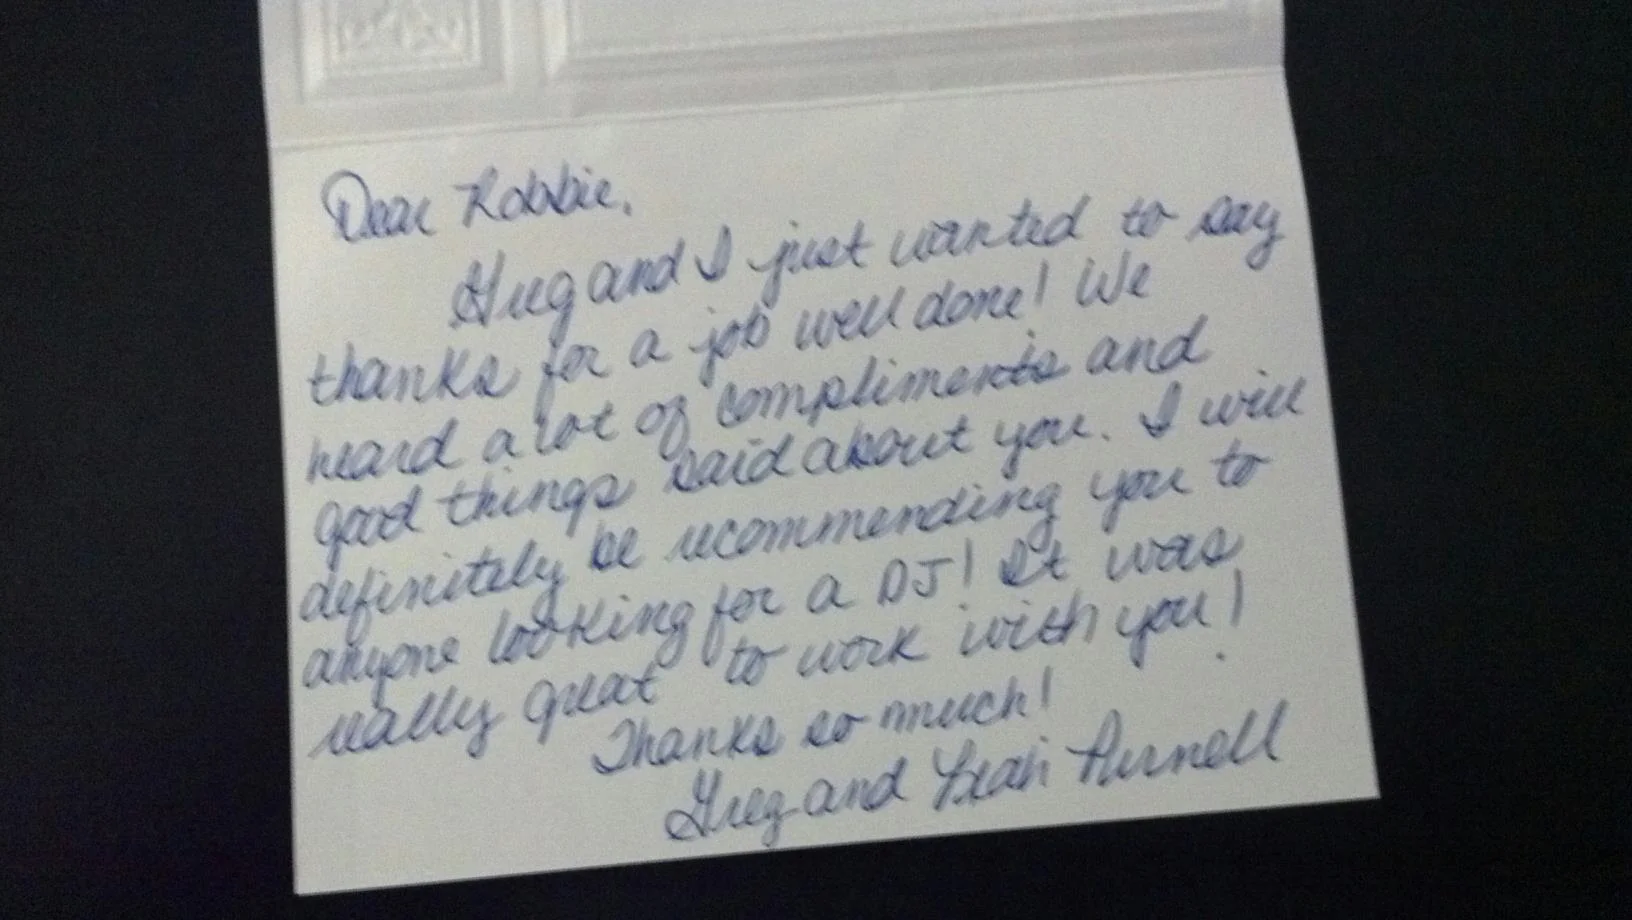 Dear Robbie,
Greg and I just wanted to say
thanks for a job well done! We
heard a lot of compliments and
good things said about you. I will
definitely be recommending you to
anyone looking for a DJ! It was
really great to work with you!
Thanks so much!
Greg and Leah Purnell